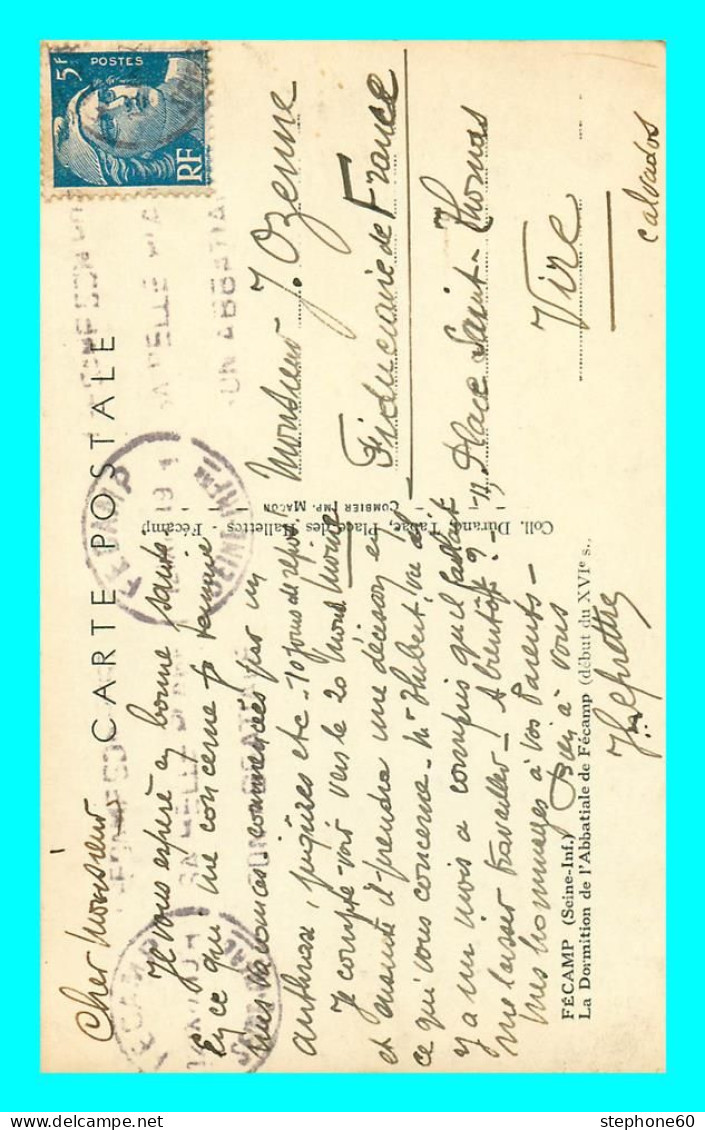 CARTE POSTALE
5F
POSTES
RF
FÉCAMP
SEINE INFRE
Cher Monsieur
Je vous espère en bonne santé.
En ce qui me concerne je termine
mes vacances commencées par un
anthrax, piqûres etc - 10 jours de repos !
Je compte voir vers le 20 Mons Moine
et ensuite il prendra une décision en
ce qui vous concerne - Mr Hubert, vu
y a un mois a compris qu'il fallait
me laisser travailler - A bientôt ? -
mes hommages à vos Parents -
Bien à vous
Monsieur J. Ozenne
Fiduciaire de France
Place Saint-Thomas
Vire
Calvados
Coll. Durand, Tabac, Place des Hallettes - Fécamp
COMBIER IMP. MACON
FÉCAMP (Seine-Inf.)
La Dormition de l'Abbatiale de Fécamp (début du XVIe s.
stephone60